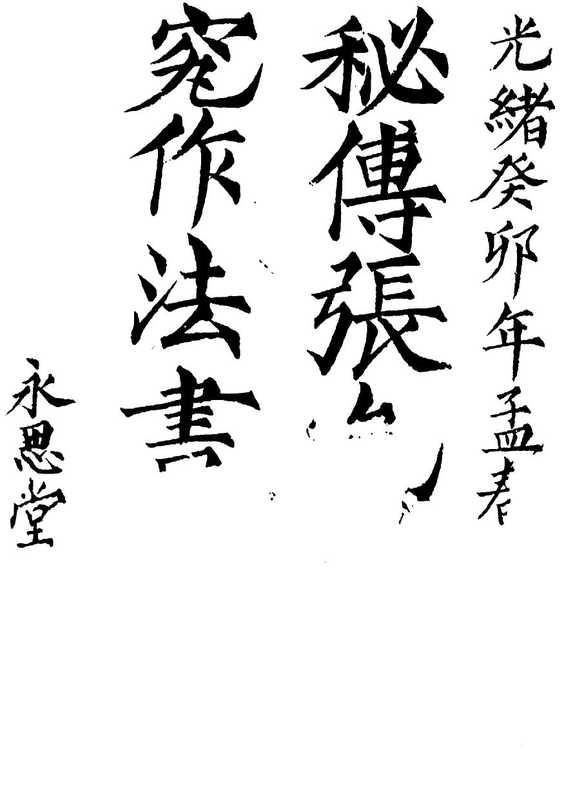 光緒癸卯年孟春
秘傳張
窀作法書
永思堂